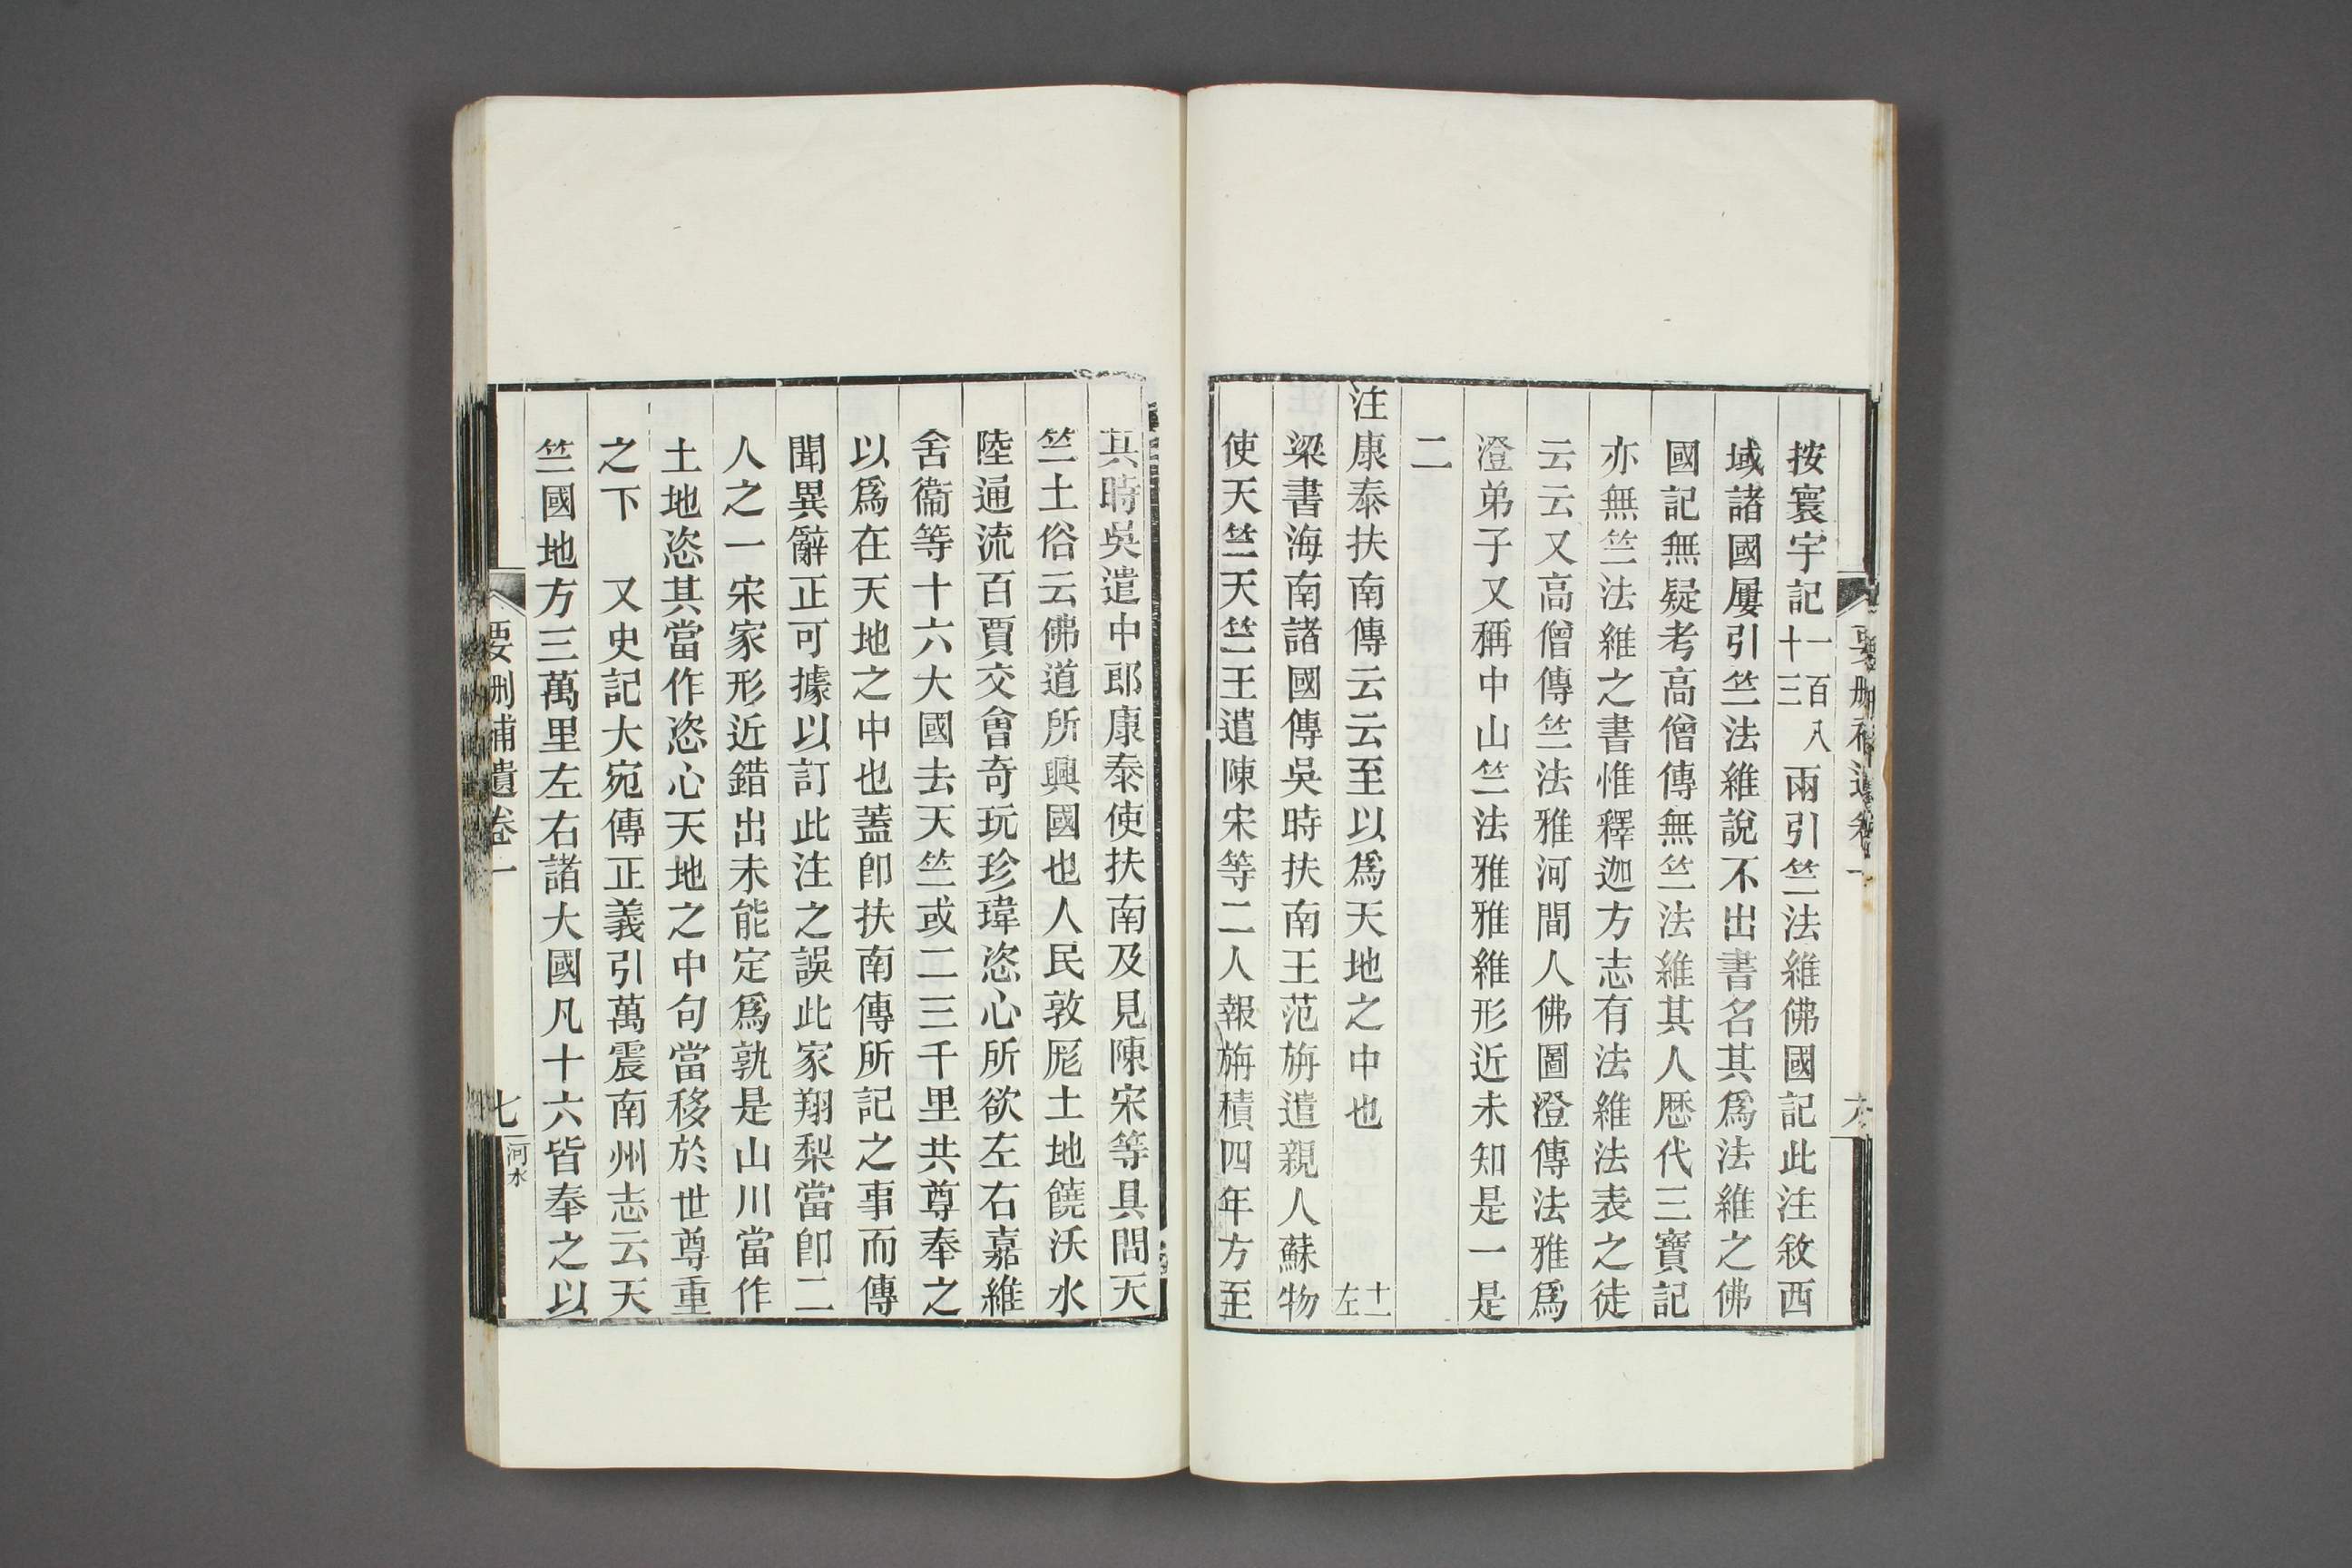 按寰宇記一百八十三兩引竺法維佛國記此注敘西
域諸國屢引竺法維說不出書名其爲法維之佛
國記無疑考高僧傳無竺法維其人歷代三寶記
亦無竺法維之書惟釋迦方志有法維法表之徒
云云又高僧傳竺法雅河間人佛圖澄傳法雅爲
澄弟子又稱中山竺法雅雅維形近未知是一是
二
注康泰扶南傳云云至以爲天地之中也 十一左
梁書海南諸國傳吳時扶南王范旃遣親人蘇物
使天竺天竺王遣陳宋等二人報旃積四年方至
其時吳遣中郎康泰使扶南及見陳宋等具問天
竺土俗云佛道所興國也人民敦厖土地饒沃水
陸通流百賈交會奇玩珍瑋恣心所欲左右嘉維
舍衞等十六大國去天竺或二三千里共尊奉之
以爲在天地之中也蓋卽扶南傳所記之事而傳
聞異辭正可據以訂此注之誤此家翔梨當卽二
人之一宋家形近錯出未能定爲孰是山川當作
土地恣其當作恣心天地之中句當移於世尊重
之下 又史記大宛傳正義引萬震南州志云天
竺國地方三萬里左右諸大國凡十六皆奉之以
要刪補遺卷一
七
河水